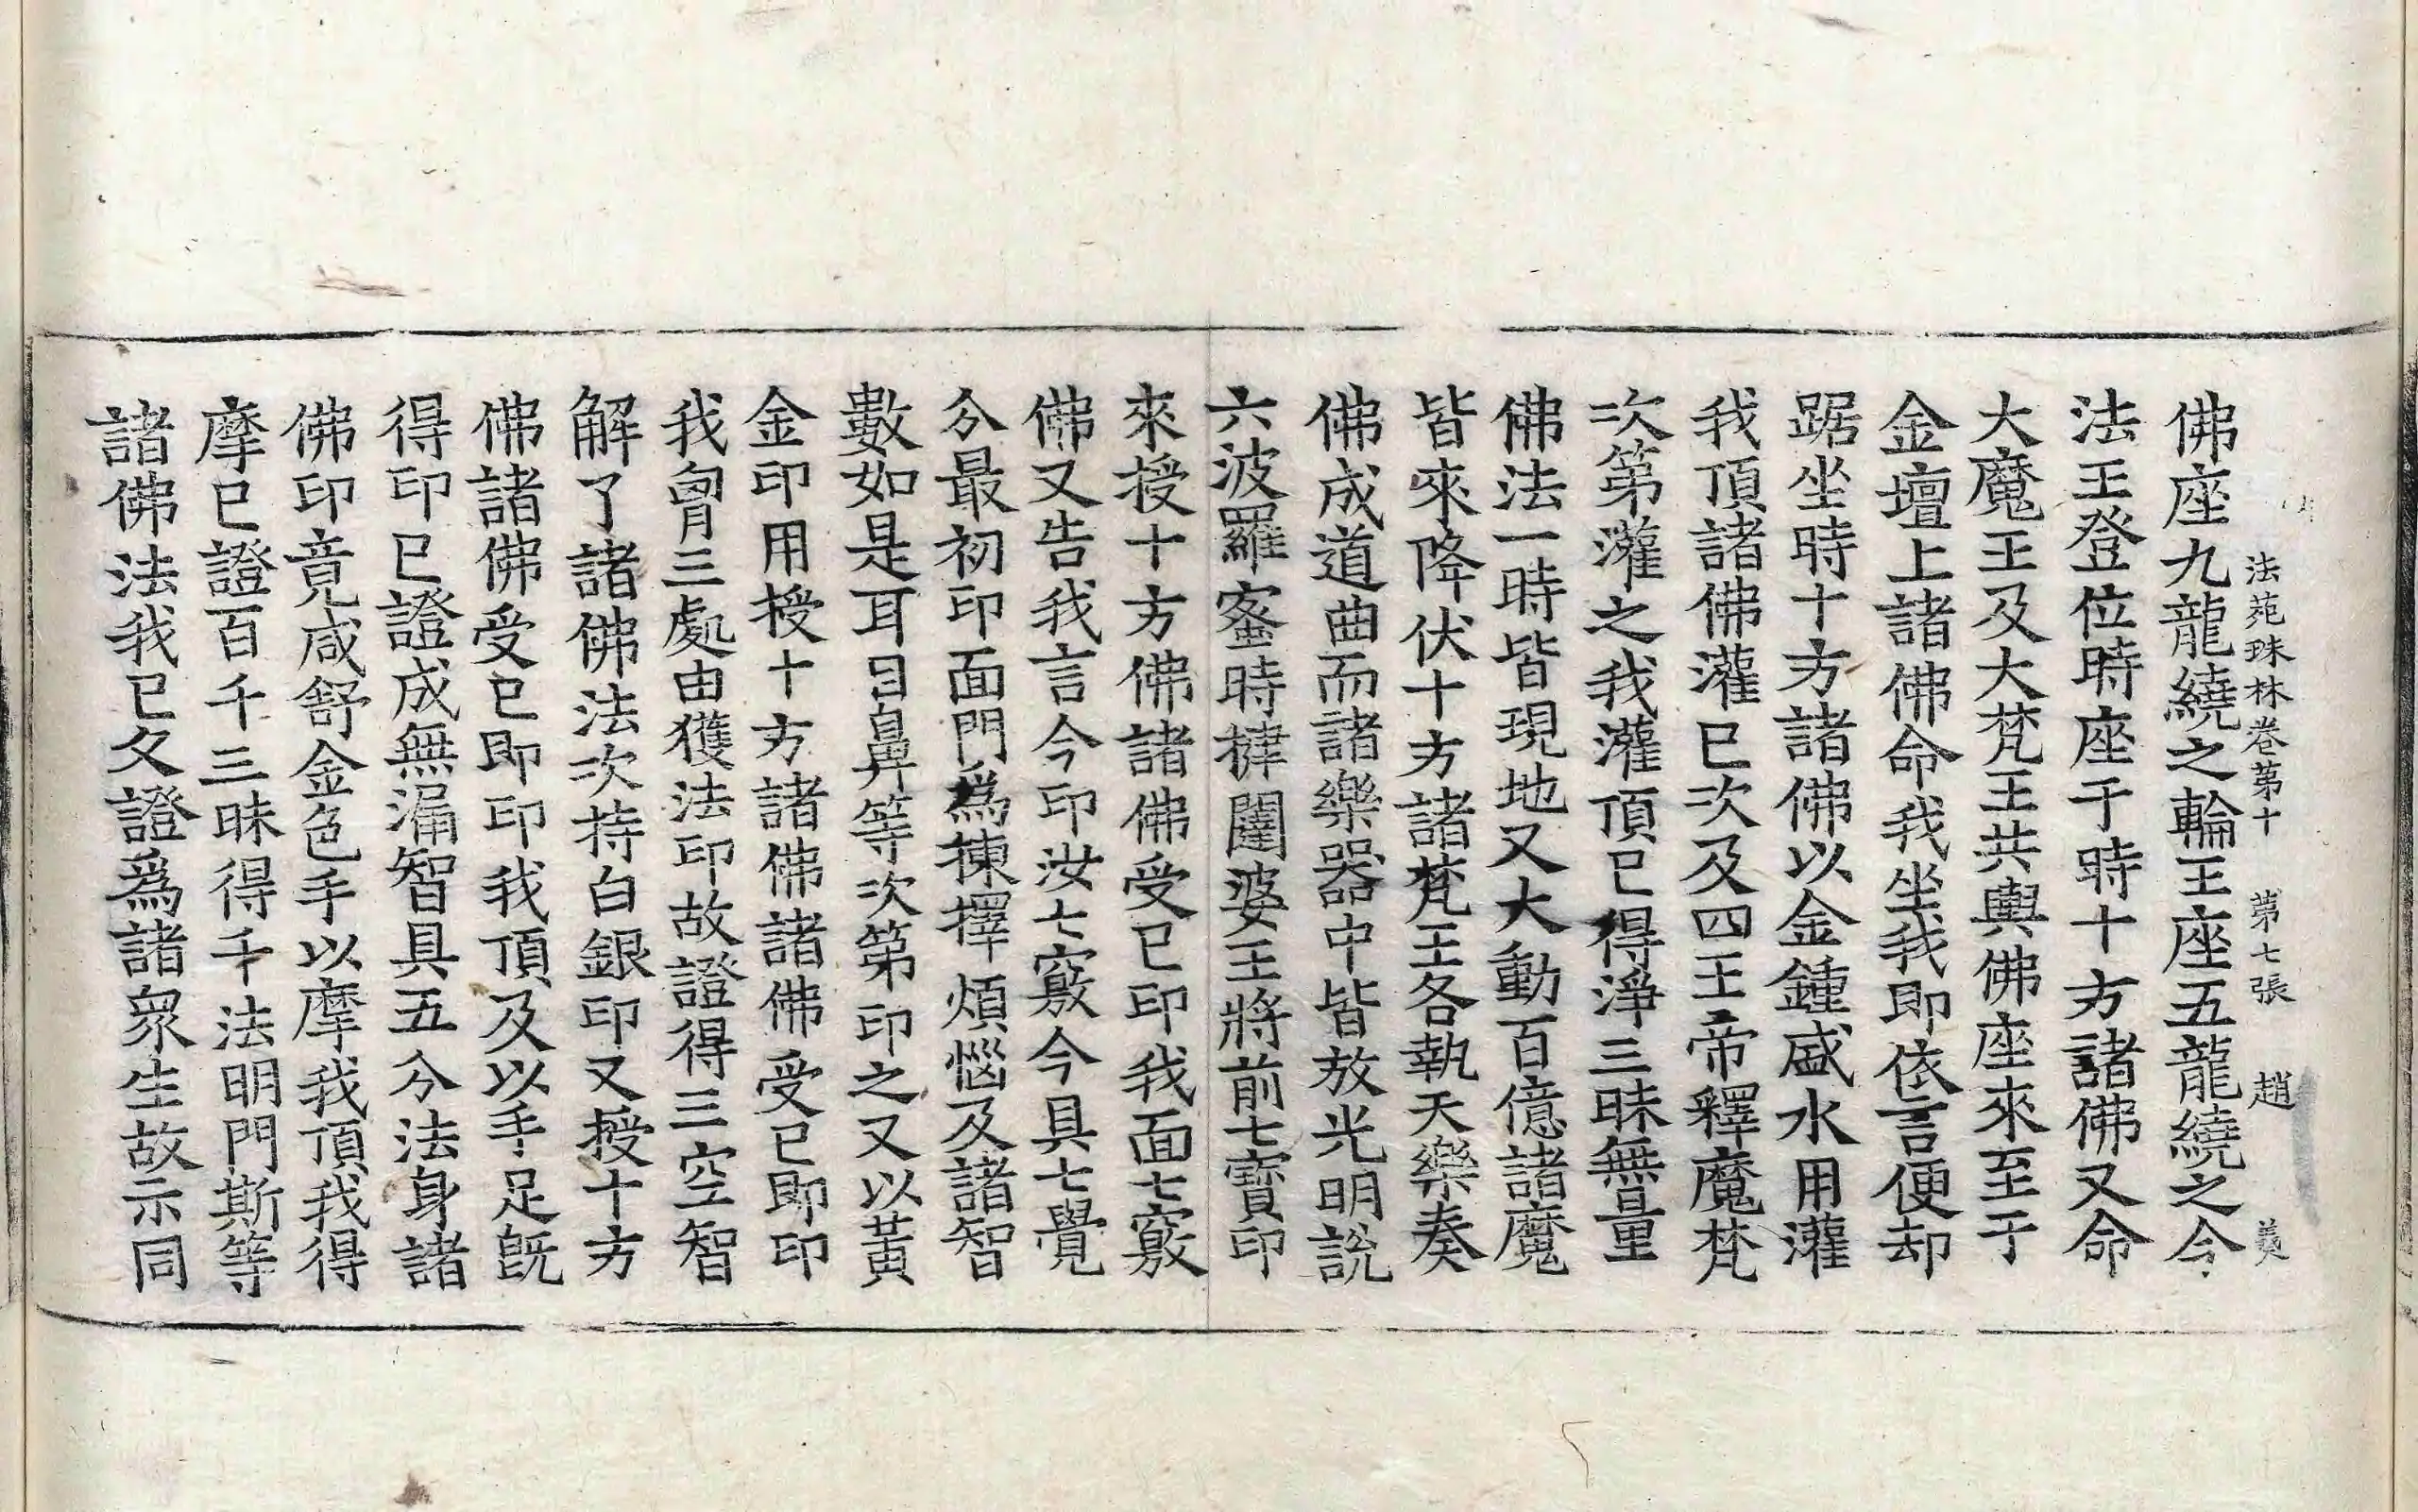 法苑珠林卷第十　第七張　趙　義
佛座九龍繞之輪王座五龍繞之今
法王登位時座于時十方諸佛又命
大魔王及大梵王共輿佛座來至于
金壇上諸佛命我坐我即依言便却
踞坐時十方諸佛以金鍾盛水用灌
我頂諸佛灌已次及四王帝釋魔梵
次第灌之我灌頂已得淨三昧無量
佛法一時皆現地又大動百億諸魔
皆來降伏十方諸梵王各執天樂奏
佛成道曲而諸樂器中皆放光明說
六波羅蜜時揵闥婆王將前七寶印
來授十方佛諸佛受已印我面七竅
佛又告我言今印汝七竅今具七覺
分最初印面門為揀擇煩惱及諸智
數如是耳目鼻等次第印之又以黃
金印用授十方諸佛諸佛受已即印
我胷三處由獲法印故證得三空智
解了諸佛法次持白銀印又授十方
佛諸佛受已即印我頂及以手足旣
得印已證成無漏智具五分法身諸
佛印竟咸舒金色手以摩我頂我得
摩已證百千三昧得千法明門斯等
諸佛法我已久證爲諸衆生故示同